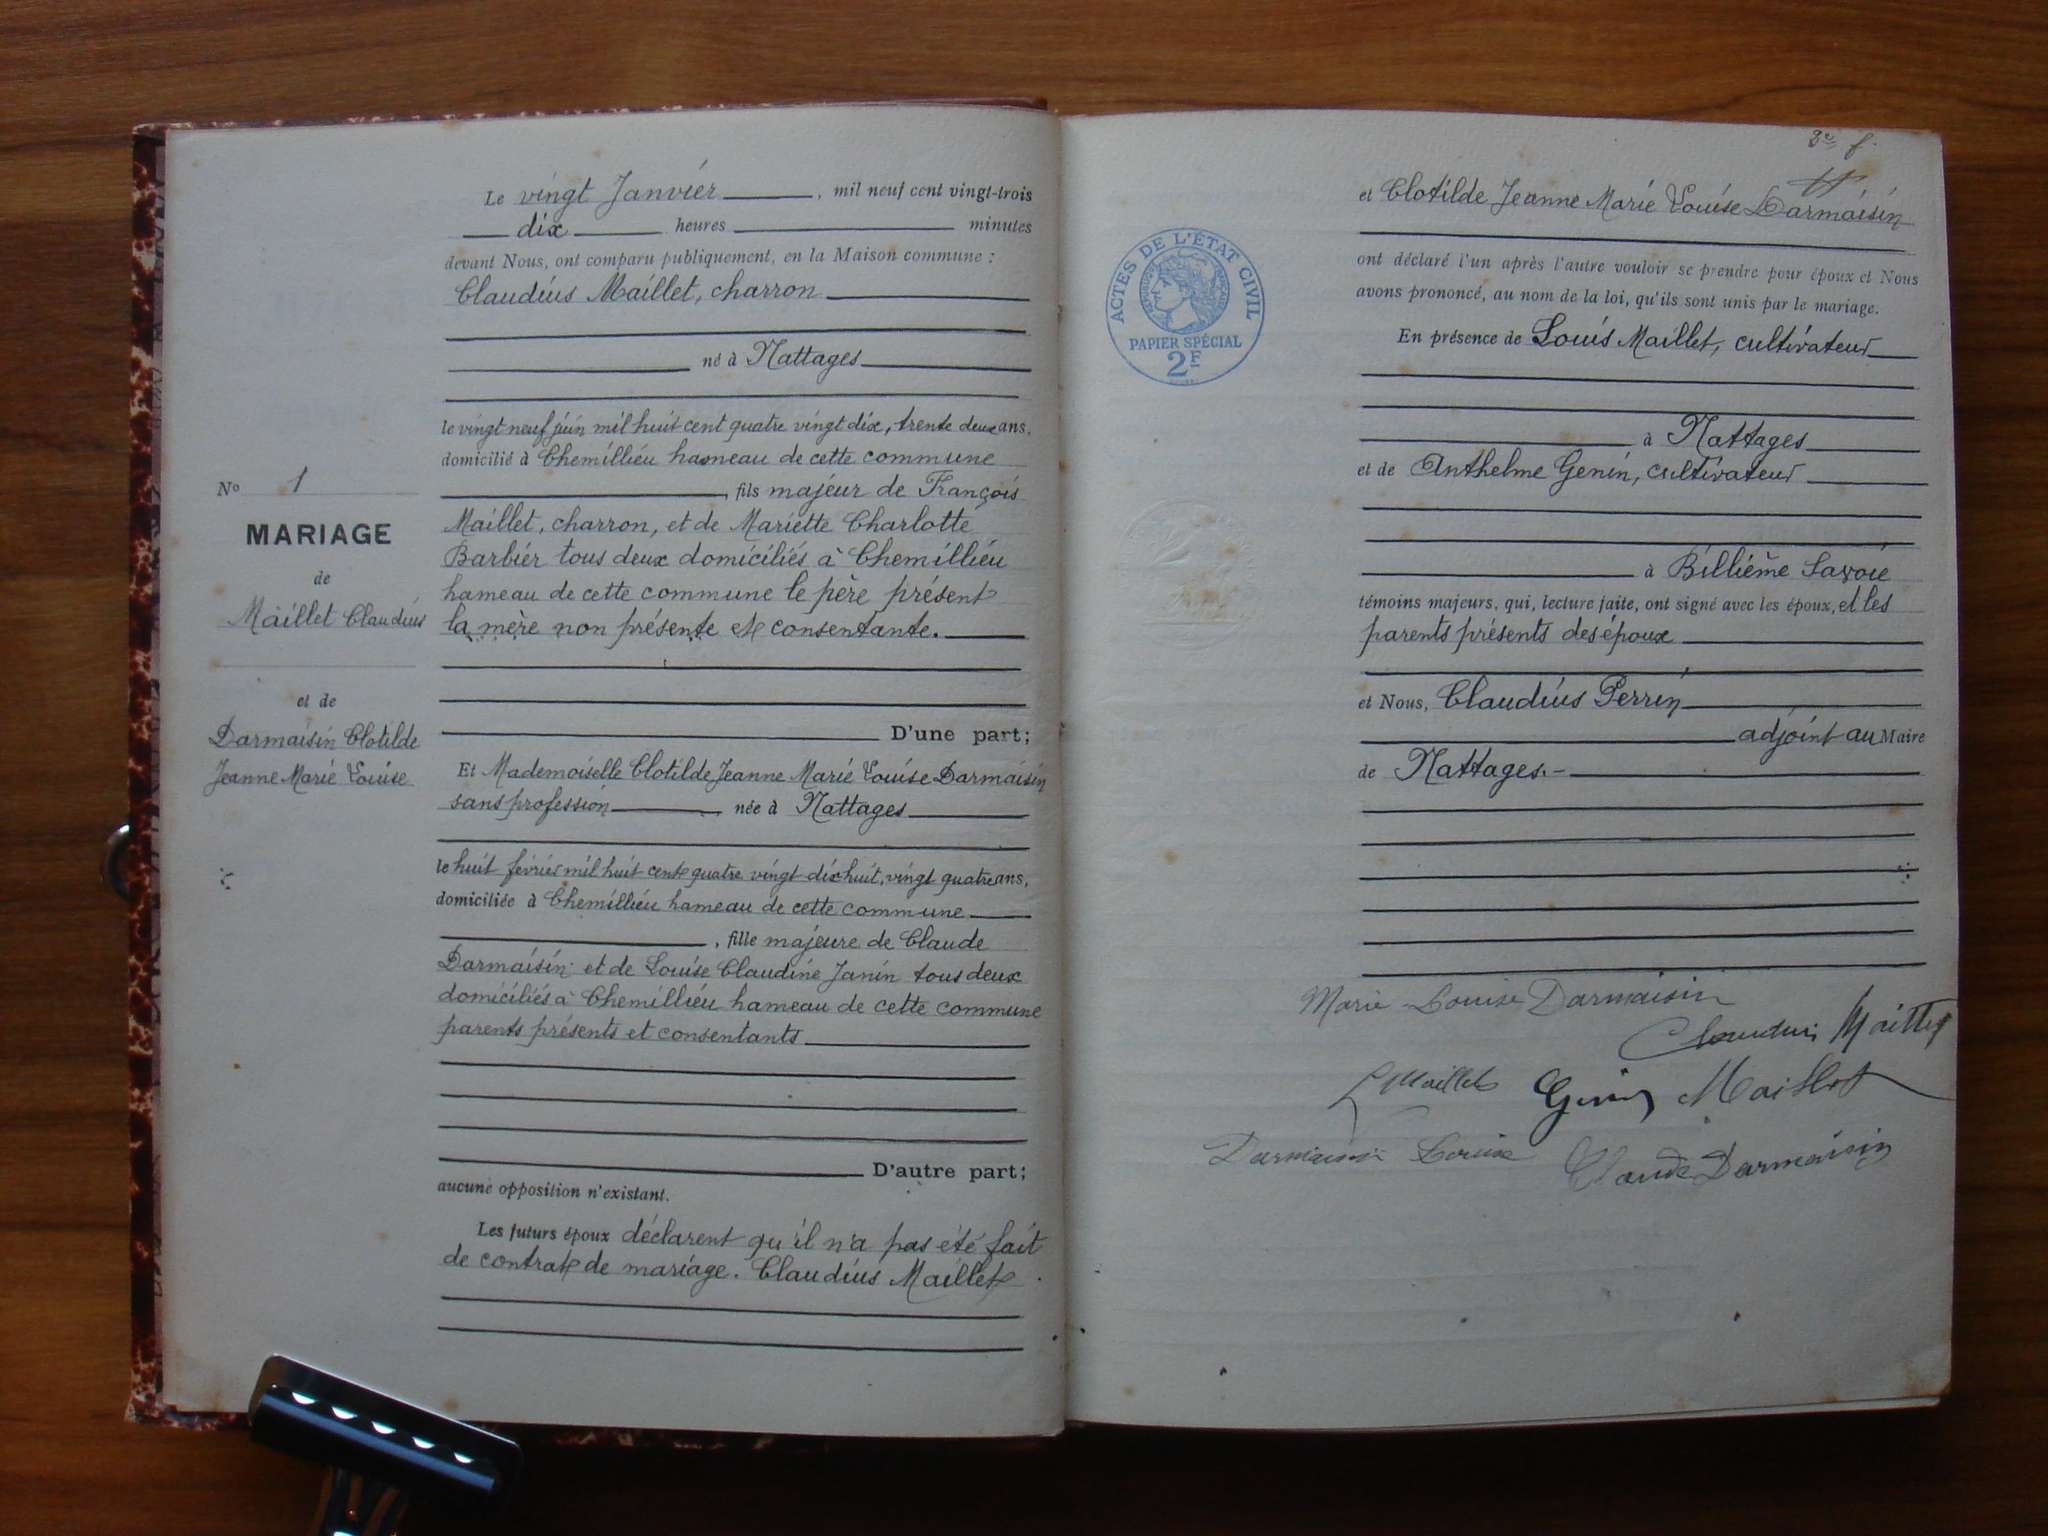 Le vingt Janvier, mil neuf cent vingt-trois
dix heures minutes
devant Nous, ont comparu publiquement, en la Maison commune :
Claudius Maillet, charron
né à Nattages
le vingt neuf juin mil huit cent quatre vingt dix, trente deux ans,
domicilié à Chemillieu hameau de cette commune
, fils majeur de François
Maillet, charron, et de Mariette Charlotte
Barbier tous deux domiciliés à Chemillieu
hameau de cette commune le père présent
la mère non présente et consentante.
D'une part;
Et Mademoiselle Clotilde Jeanne Marie Louise Darmaisin
sans profession, née à Nattages
le huit février mil huit cent quatre vingt dix huit, vingt quatre ans,
domiciliée à Chemillieu hameau de cette commune
, fille majeure de Claude
Darmaisin et de Louise Claudine Janin tous deux
domiciliés à Chemillieu hameau de cette commune
parents présents et consentants
D'autre part;
aucune opposition n'existant.
Les futurs époux déclarent qu'il n'a pas été fait
de contrat de mariage. Claudius Maillet
No 1
MARIAGE
de
Maillet Claudius
et de
Darmaisin Clotilde
Jeanne Marie Louise
3e f.
et Clotilde Jeanne Marie Louise Darmaisin
ont déclaré l'un après l'autre vouloir se prendre pour époux et Nous
avons prononcé, au nom de la loi, qu'ils sont unis par le mariage.
En présence de Louis Maillet, cultivateur
à Nattages
et de Anthelme Genin, cultivateur
à Billième Savoie
témoins majeurs, qui, lecture faite, ont signé avec les époux, et les
parents présents des époux
et Nous, Claudius Perrin
adjoint au Maire
de Nattages.-
ACTES DE L'ÉTAT CIVIL
RÉPUBLIQUE FRANÇAISE
PAPIER SPÉCIAL
2F
Marie Louise Darmaisin
Claudius Maillet
L Maillet Genin Maillet
Darmaisin Louise Claude Darmaisin